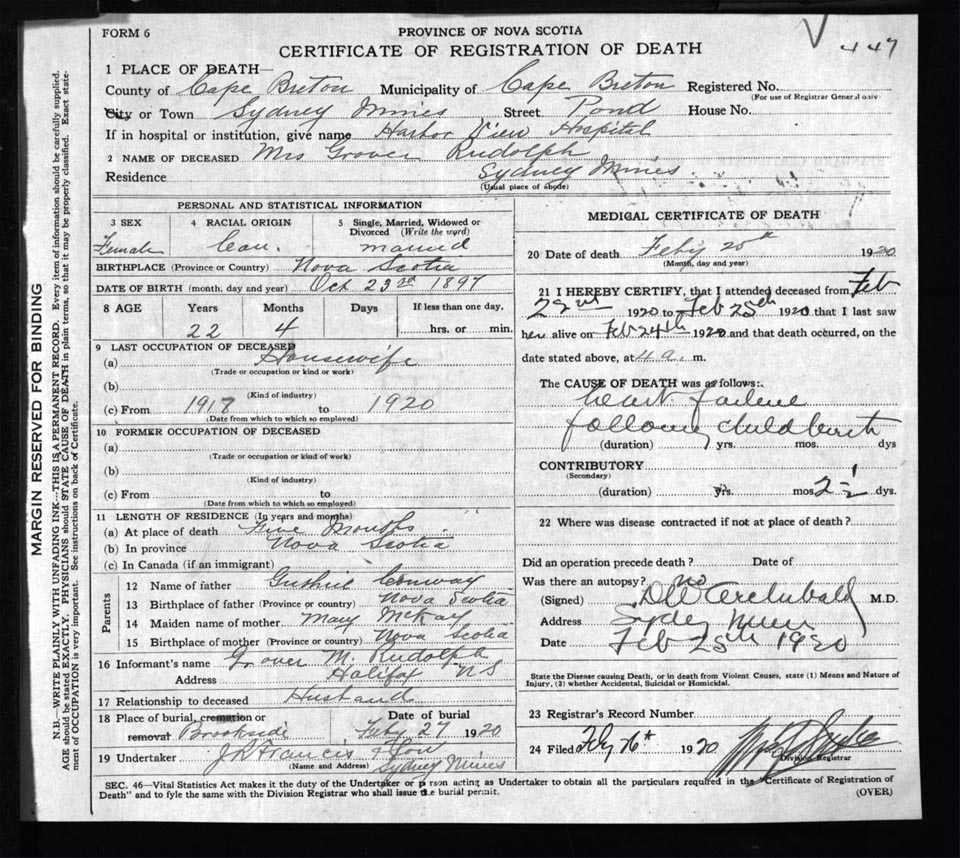 FORM 6
PROVINCE OF NOVA SCOTIA
447
CERTIFICATE OF REGISTRATION OF DEATH
1 PLACE OF DEATH—
County of Cape Breton Municipality of Cape Breton Registered No.
(For use of Registrar General only
City or Town Sydney Mines Street Pond House No.
If in hospital or institution, give name Harbor View Hospital
2 NAME OF DECEASED Mrs Grover Rudolph
Residence Sydney Mines
(Usual place of abode)
PERSONAL AND STATISTICAL INFORMATION
3 SEX 4 RACIAL ORIGIN 5 Single, Married, Widowed or Divorced (Write the word)
Female Can. married
BIRTHPLACE (Province or Country) Nova Scotia
DATE OF BIRTH (month, day and year) Oct 23rd 1897
8 AGE Years Months Days If less than one day,
22 4 hrs. or min.
9 LAST OCCUPATION OF DECEASED
(a) Housewife
(Trade or occupation or kind or work)
(b)
(Kind of industry)
(c) From 1917 to 1920
(Date from which to which so employed)
10 FORMER OCCUPATION OF DECEASED
(a)
(Trade or occupation or kind of work)
(b)
(Kind of industry)
(c) From to
(Date from which to which so employed)
11 LENGTH OF RESIDENCE (In years and months)
(a) At place of death Five Months
(b) In province Nova Scotia
(c) In Canada (if an immigrant)
Parents
12 Name of father Conway
13 Birthplace of father (Province or country) Nova Scotia
14 Maiden name of mother Mary McKay
15 Birthplace of mother (Province or country) Nova Scotia
16 Informant's name Grover M. Rudolph
Address Halifax NS
17 Relationship to deceased Husband
18 Place of burial, cremation or removal Brookside Date of burial Feby 27 1920
19 Undertaker J R Francis & Son
(Name and Address) Sydney Mines
MEDICAL CERTIFICATE OF DEATH
20 Date of death Feby 25th 1920
(Month, day and year)
21 I HEREBY CERTIFY, that I attended deceased from Feb
22nd 1920 to Feb 25th 1920 that I last saw
her alive on Feb 24th 1920 and that death occurred, on the
date stated above, at 4 a. m.
The CAUSE OF DEATH was as follows:
heart failure
following childbirth
(duration) yrs. mos. dys
CONTRIBUTORY
(Secondary)
(duration) yrs. mos 2½ dys.
22 Where was disease contracted if not at place of death?
Did an operation precede death? Date of
Was there an autopsy? no
(Signed) Archibald M.D.
Address Sydney Mines
Date Feb 25th 1920
State the Disease causing Death, or in death from Violent Causes, state (1) Means and Nature of
Injury, (2) whether Accidental, Suicidal or Homicidal.
23 Registrar's Record Number
24 Filed Feby 26th 1920
Division Registrar
SEC. 46—Vital Statistics Act makes it the duty of the Undertaker or person acting as Undertaker to obtain all the particulars required in the "Certificate of Registration of
Death" and to fyle the same with the Division Registrar who shall issue the burial permit. (OVER)
MARGIN RESERVED FOR BINDING
N.B.—WRITE PLAINLY WITH UNFADING INK—THIS IS A PERMANENT RECORD. Every item of information should be carefully supplied.
AGE should be stated EXACTLY. PHYSICIANS should STATE CAUSE OF DEATH in plain terms, so that it may be properly classified. Exact state-
ment of OCCUPATION is very important. See instructions on back of Certificate.